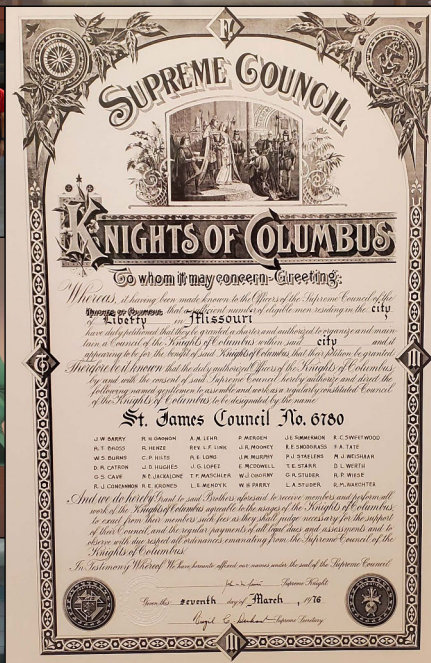 F.
SUPREME COUNCIL
KNIGHTS OF COLUMBUS
To whom it may concern - Greeting:
Whereas, it having been made known to the Officers of the Supreme Council of the
that a sufficient number of eligible men residing in the city
of Liberty in Missouri
have duly petitioned that they be granted a charter and authorized to organize and main
tain a Council of the Knights of Columbus within said city and it
appearing to be for the benefit of said Knights of Columbus, that their petition be granted.
Therefore be it known that the duly authorized Officers of the Knights of Columbus,
by and with the consent of said Supreme Council hereby authorize and direct the
following named gentlemen to assemble and work as a regularly constituted Council
of the Knights of Columbus to be designated by the name
St. James Council No. 6780
J W BARRY R H GAGNON A.M. LEHR P MERGEN J.E. SIMMERMON R.C. SWEETWOOD
A.T. BROSS R HENZE REV L.F. LINK J.R. MOONEY R.E. SNODGRASS F.A. TATE
W.S. BURNS C.P. HILTS R.E. LOMO J.M. MURPHY P.J. STAELENS M.J. WEISHAAR
D.R. CATRON J.D. HUGHES J.G. LOPEZ E. MCDOWELL T.E. STARR D.L. WERTH
G.S. CAVE N.E. JACKALONE T.F. MASCHLER W.J. G.R. STUDER R.P. WIESE
R.J. CONCANNON R.E. KRONES E. MERDYK W.B. PARRY L.A. STUDER R.M. WAECHTER
And we do hereby Grant to said Brothers aforesaid to receive members and perform all
work of the Knights of Columbus agreeable to the usages of the Knights of Columbus,
to exact from their members such fees as they shall judge necessary for the support
of their Council, and the regular payments of all legal dues and assessments and to
observe with due respect all ordinances emanating from the Supreme Council of the
Knights of Columbus.
In Testimony Whereof We have hereunto affixed our names under the seal of the Supreme Council
Supreme Knight
Given this seventh day of March, 1976
Supreme Secretary